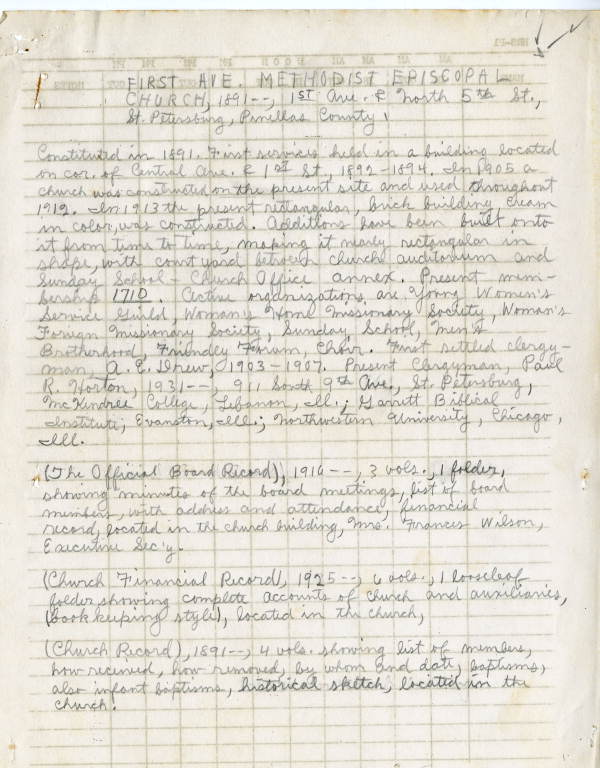 FIRST AVE. METHODIST EPISCOPAL
CHURCH, 1891--, 1st Ave. & North 5th St.,
St. Petersburg, Pinellas County.
Constituted in 1891. First services held in a building located
on cor. of Central Ave. & 1st St., 1892-1894. In 1905 a
church was constructed on the present site and used throughout
1912. In 1913 the present rectangular, brick building, cream
in color, was constructed. Additions have been built onto
it from time to time, making it nearly rectangular in
shape, with court yard between church auditorium and
Sunday School - Church Office annex. Present mem-
bership 1710. Active organizations are Young Women's
Service Guild, Woman's Home Missionary Society, Woman's
Foreign Missionary Society, Sunday School, Men's
Brotherhood, Friendly Forum, Choir. First settled clergy-
man, A. E. Drew, 1903-1907. Present Clergyman, Paul
R. Horton, 1931--, 911 South 9th Ave., St. Petersburg,
McKindree College, Lebanon, Ill.; Garrett Biblical
Institute, Evanston, Ill.; Northwestern University, Chicago,
Ill.
(The Official Board Record), 1916--, 3 vols., 1 folder,
showing minutes of the board meetings, list of board
members, with address and attendance, financial
record, located in the church building, Mrs. Frances Wilson,
Executive Sec'y.
(Church Financial Record), 1925--, 6 vols., 1 looseleaf
folder, showing complete accounts of church and auxiliaries,
(book keeping style), located in the church,
(Church Record), 1891--, 4 vols. showing list of members,
how received, how removed, by whom and date, baptisms,
also infant baptisms, historical sketch, located in the
church.